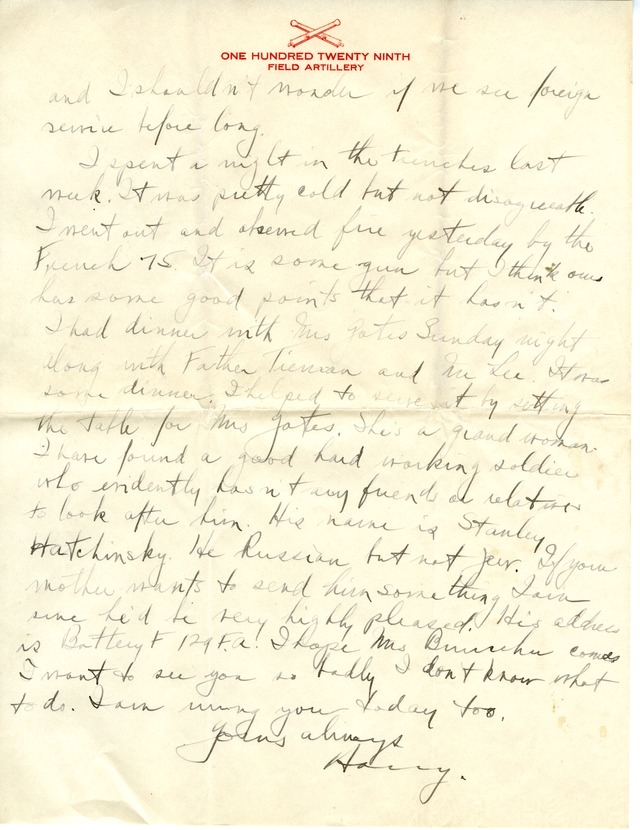 ONE HUNDRED TWENTY NINTH
FIELD ARTILLERY
and I shouldn't wonder if we see foreign
service before long.
I spent a night in the trenches last
week. It was pretty cold but not disagreeable.
I went out and observed fire yesterday by the
French 75. It is some gun but I think ours
has some good points that it hasn't.
I had dinner with Mrs Gates Sunday night
along with Father Tiernan and Mr Lee. It was
some dinner. I helped to serve it by setting
the table for Mrs Gates. She's a grand woman.
I have found a good hard working soldier
who evidently hasn't any friends or relatives
to look after him. His name is Stanley
Hatchinsky. He Russian but not Jew. If your
mother wants to send him something I am
sure he'd be very highly pleased. His address
is Battery F 129 F.A. I hope Mrs comes
I want to see you so badly I don't know what
to do. I am you today too.
Yours always
Harry.